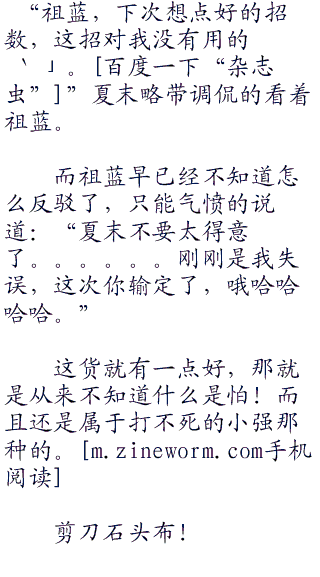 “祖蓝，下次想点好的招
数，这招对我没有用的
‵′」。[百度一下“杂志
虫”]”夏末略带调侃的看着
祖蓝。
而祖蓝早已经不知道怎
么反驳了，只能气愤的说
道：“夏末不要太得意
了。。。。。。刚刚是我失
误，这次你输定了，哦哈哈
哈哈。”
这货就有一点好，那就
是从来不知道什么是怕！而
且还是属于打不死的小强那
种的。[m.zineworm.com手机
阅读]
剪刀石头布！